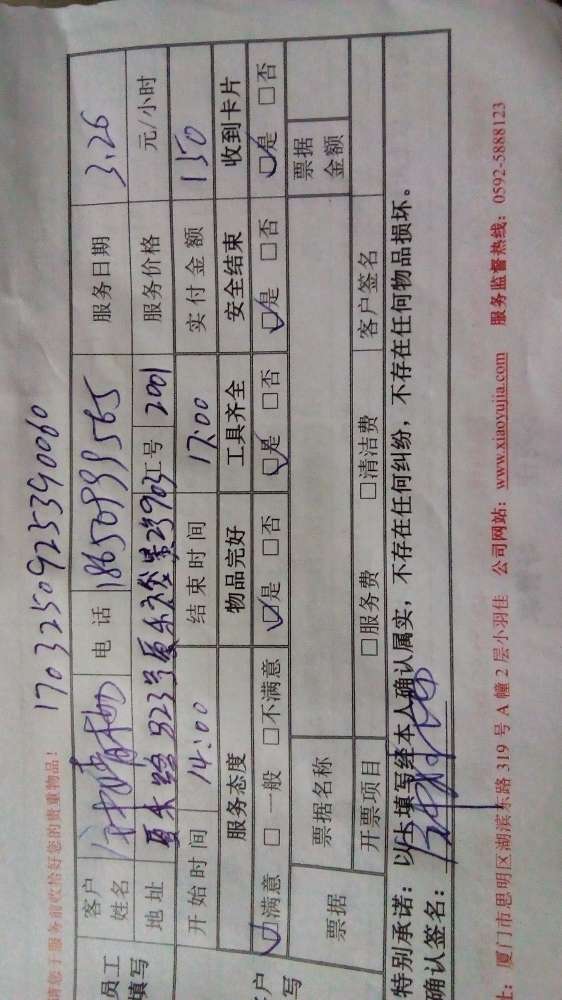 1703250925390060
请您于服务前收拾好您的贵重物品!
员工填写
客户姓名 电话 服务日期 3.26
地址 号 2001 服务价格 元/小时
开始时间 14:00 结束时间 17:00 实付金额 150
客户填写
服务态度 物品完好 工具齐全 安全结束 收到卡片
☑满意 □一般 □不满意 ☑是 □否 ☑是 □否 ☑是 □否 ☑是 □否
票据 票据名称 票据金额
开票项目 □服务费 □清洁费 客户签名
特别承诺:以上填写经本人确认属实,不存在任何纠纷,不存在任何物品损坏。
确认签名:
址:厦门市思明区湖滨东路 319 号 A 幢 2 层小羽佳 公司网站:www.xiaoyujia.com 服务监督热线:0592-5888123